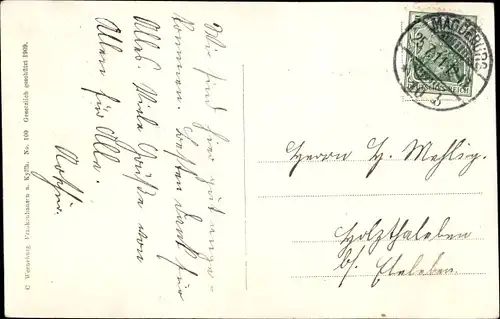 Wir sind hier gut ange-
kommen. Besten Dank für
Alles Viele Grüße von
Allen für Alle.
C. Werneburg, Frankenhausen a. Kyffh. No. 100 Gesetzlich geschützt 1909.
MAGDEBURG
25.7.11.
DEUTSCHES REICH
Herrn H. Mehlig.
Holzthaleben
b/. Ebeleben.